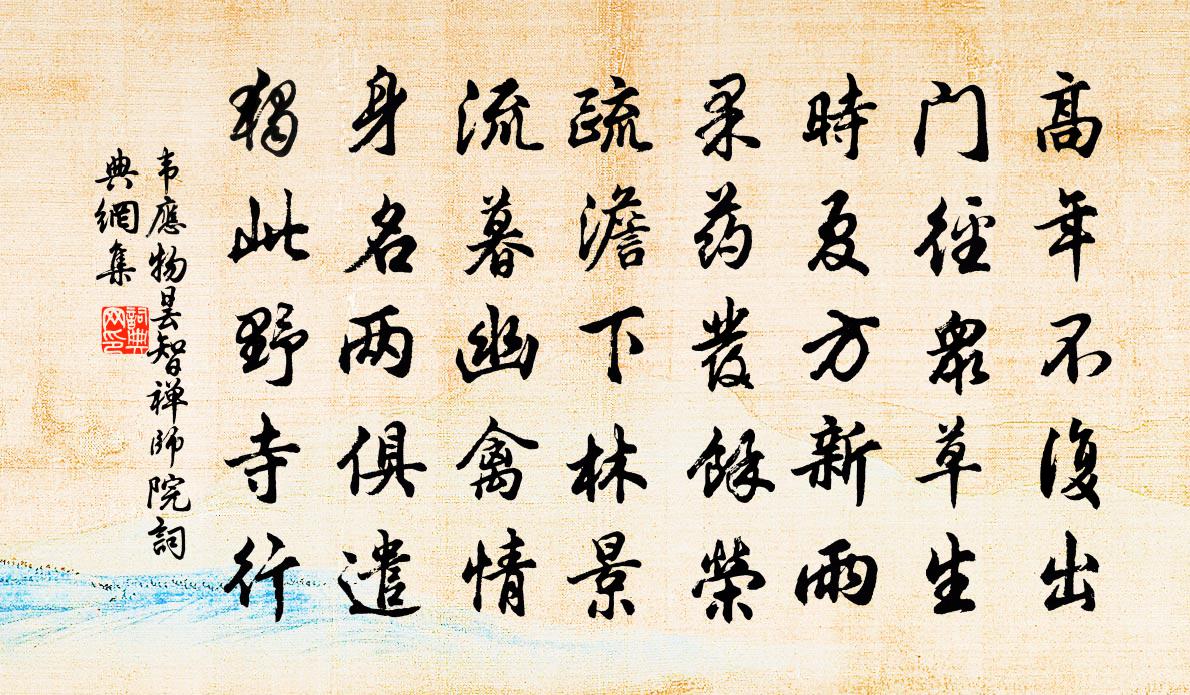 高年不復出
门徑衆草生
時夏方新雨
果药發餘榮
疏澹下林景
流暮幽禽情
身名两俱遣
獨此野寺行
韦應物曇智禅師院詞
典網集
詞典
网印